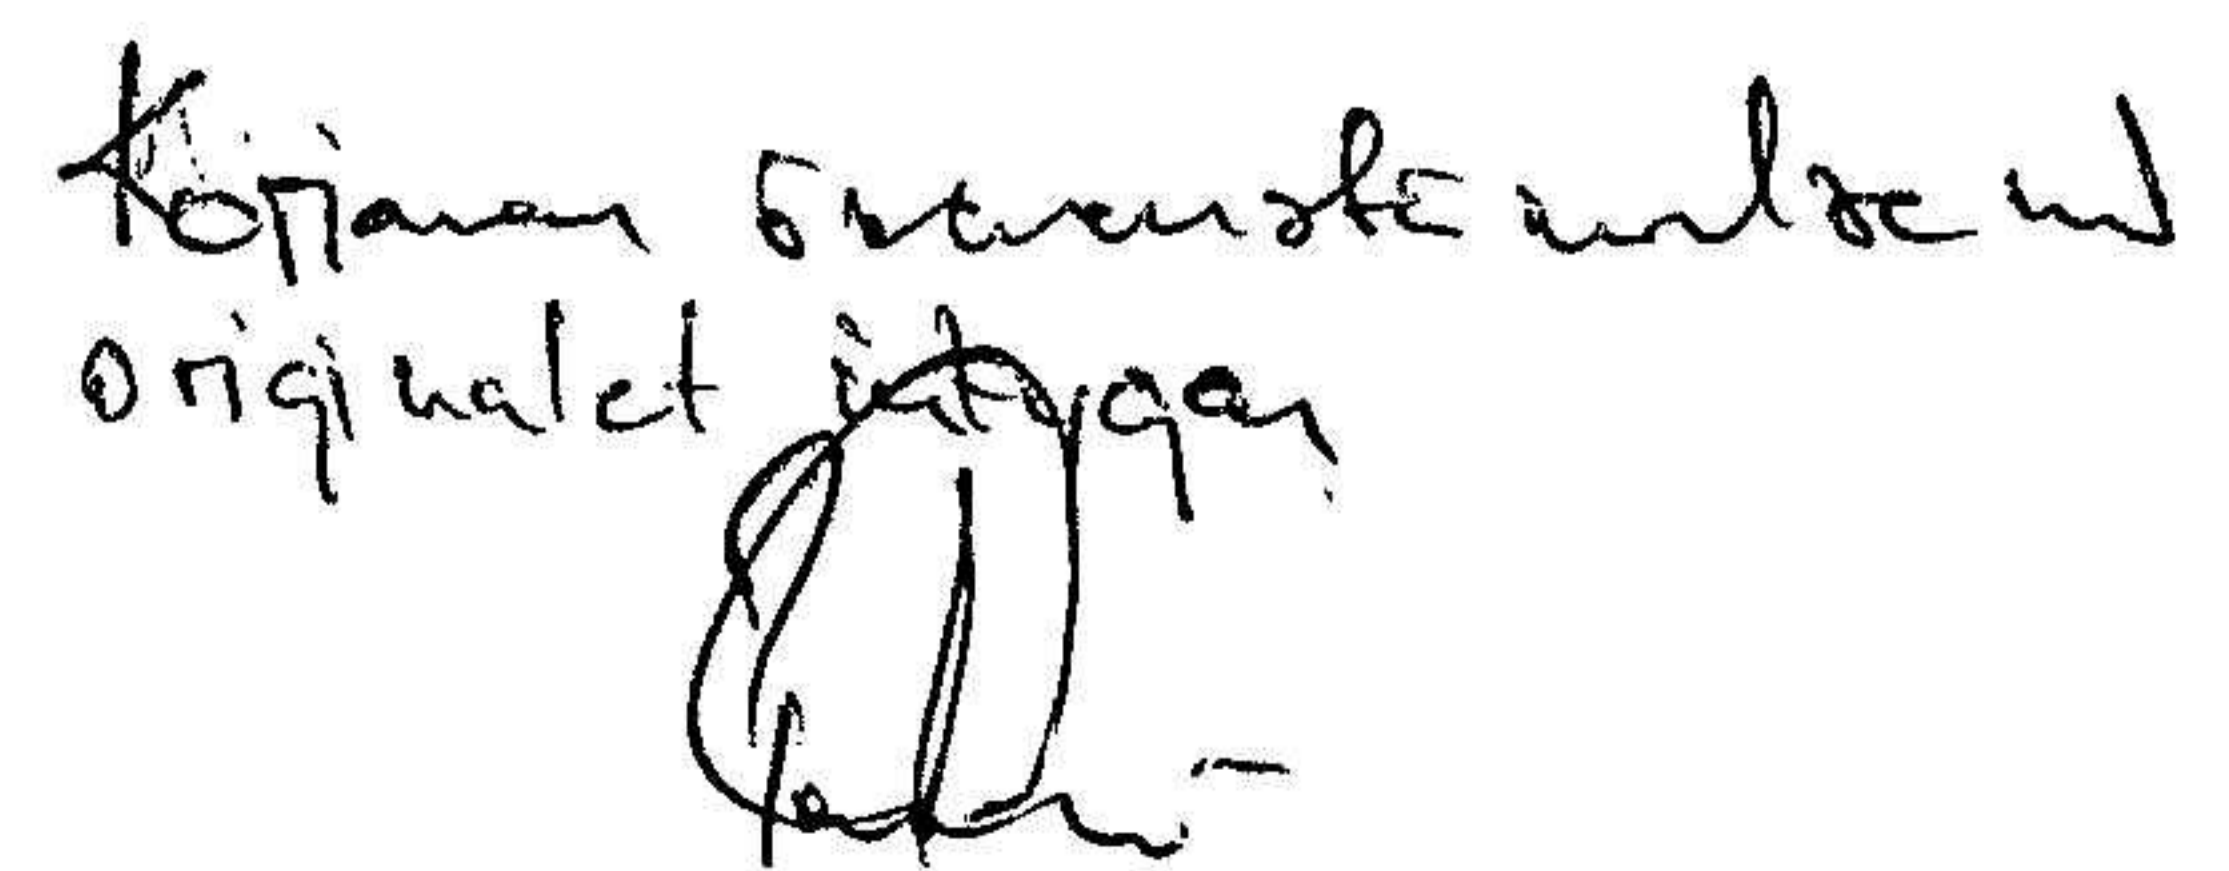 Kopians överensstämmelse med
originalet intygar